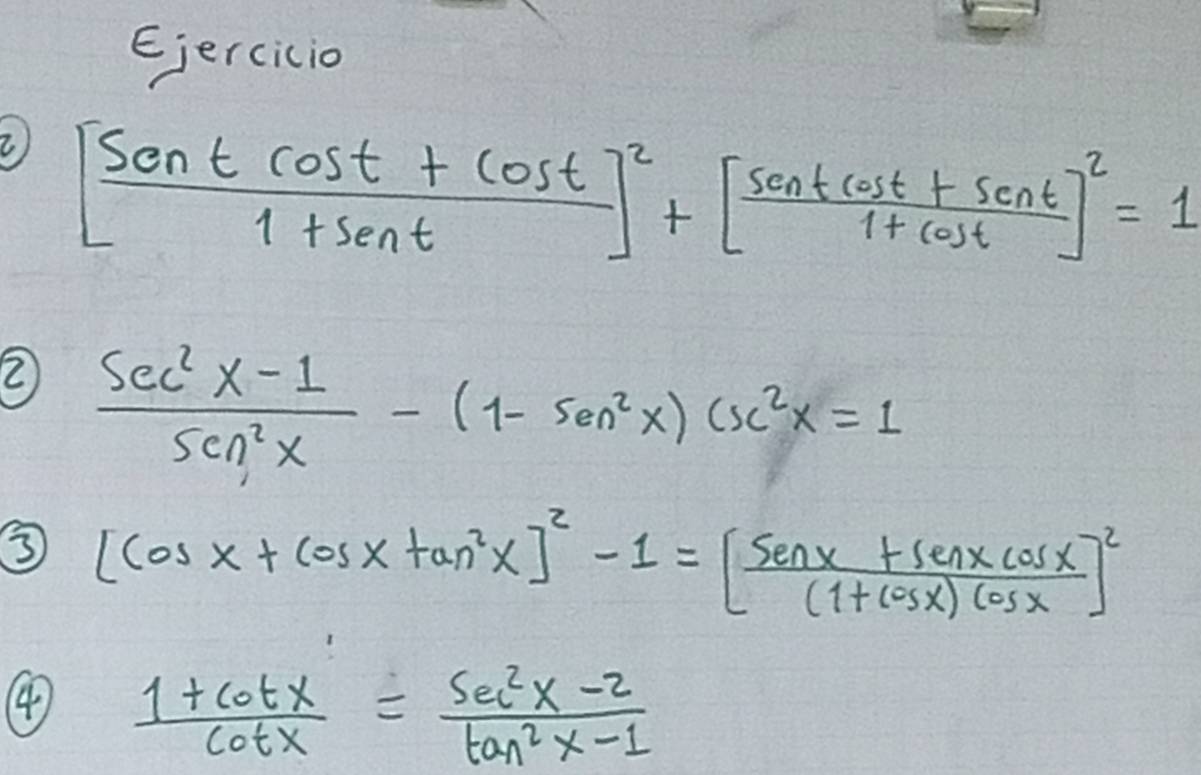 Ejercicio
① [(Sen t cos t + Cos t)/(1 + Sen t)]² + [(sen t cos t + Sen t)/(1 + cos t)]² = 1
② (Sec² x - 1)/(sen² x) - (1 - Sen² x) Csc² x = 1
③ [Cos x + Cos x tan² x]² - 1 = [(Sen x + sen x cos x)/((1 + cos x) Cos x)]²
④ (1 + cot x)/(cot x) = (Sec² x - 2)/(tan² x - 1)